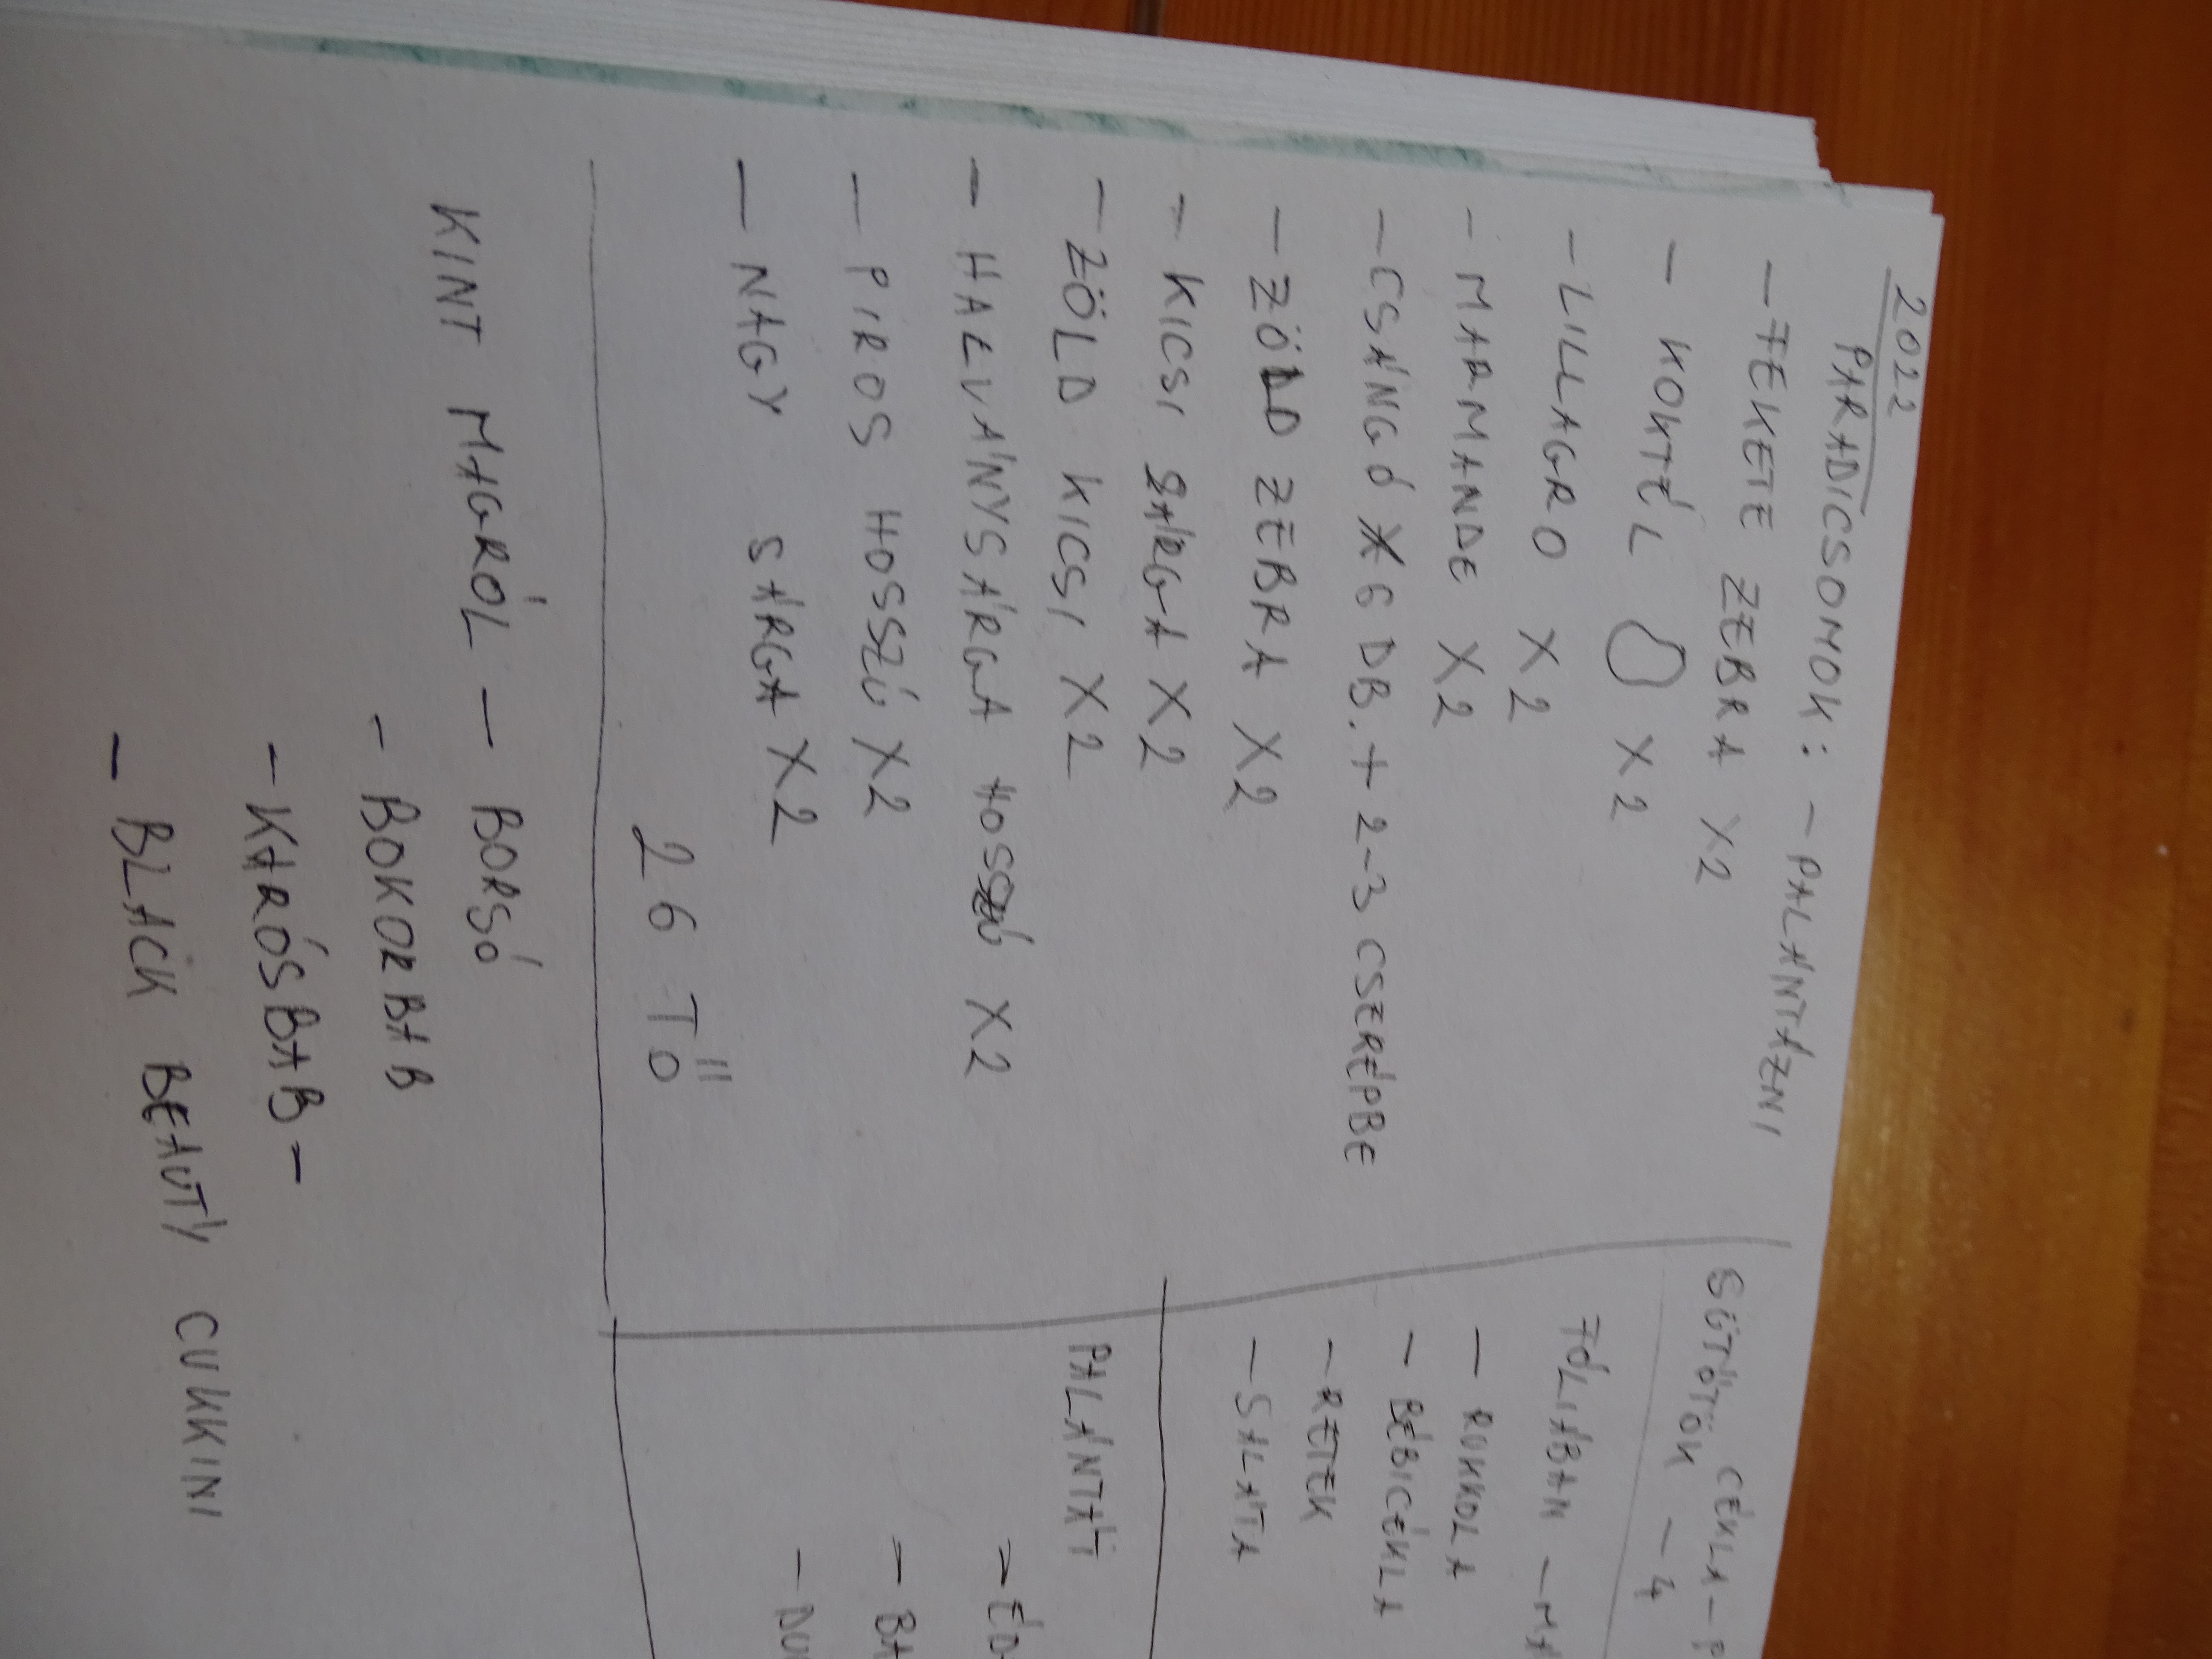 2022
PARADICSOMOK: - PALÁNTÁZNI
- FEKETE ZEBRA X2
- KOKTÉL X2
- LILLAGRO X2
- MARMANDE X2
- CSÁNGÓ X 6 DB. + 2-3 CSERÉPBE
- ZÖLD ZEBRA X2
- KICSI SÁRGA X2
- ZÖLD KICSI X2
- HALVÁNYSÁRGA HOSSZÚ X2
- PIROS HOSSZÚ X2
- NAGY SÁRGA X2
26 TŐ
KINT MAGRÓL - BORSÓ
- BOKORBAB
- KARÓSBAB -
- BLACK BEAUTY CUKKINI
CÉKLA - P
SÜTŐTÖK - 4
FÓLIÁBAN - MA
- RUKKOLA
- BÉBICÉKLA
- RETEK
- SALÁTA
PALÁNTÁT
- ÉD
- BA
- DU